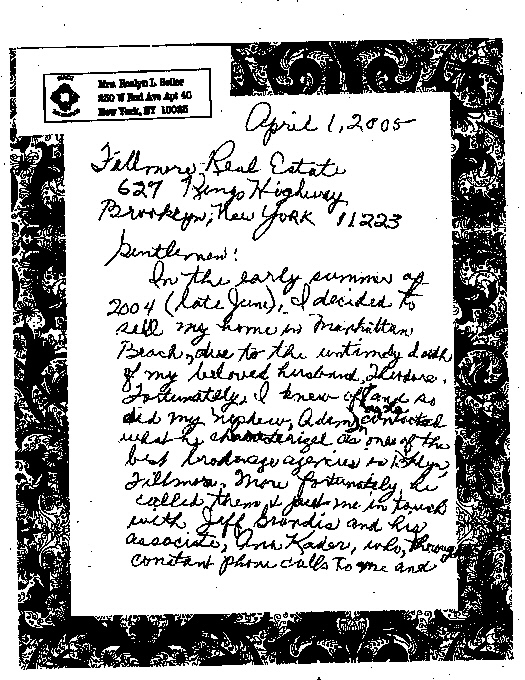 Mrs. Roslyn L. Seller
West End Ave Apt 4C
New York, NY
April 1, 2005
Fillmore Real Estate
627 Kings Highway
Brooklyn, New York 11223
Gentlemen:
In the early summer of
2004 (late June), I decided to
sell my home in Manhattan
Beach, due to the untimely death
of my beloved husband, Theodore.
Fortunately, I knew of and so
did my nephew, Adam, contacted
what he characterized as one of the
best brokerage agencies in Bklyn,
Fillmore. More fortunately, he
called them & put me in touch
with Jeff Brandis and his
associate, Ann Kader, who, through
constant phone calls to me and